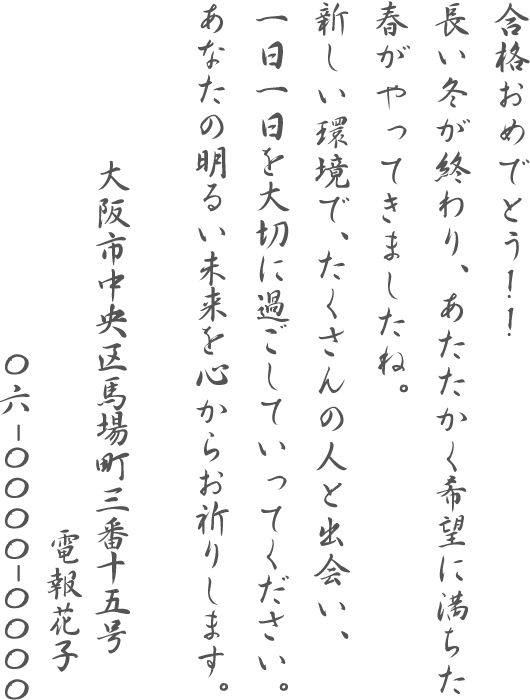 合格おめでとう！！
長い冬が終わり、あたたかく希望に満ちた
春がやってきましたね。
新しい環境で、たくさんの人と出会い、
一日一日を大切に過ごしていってください。
あなたの明るい未来を心からお祈りします。
大阪市中央区馬場町三番十五号
電報花子
〇六－〇〇〇〇－〇〇〇〇